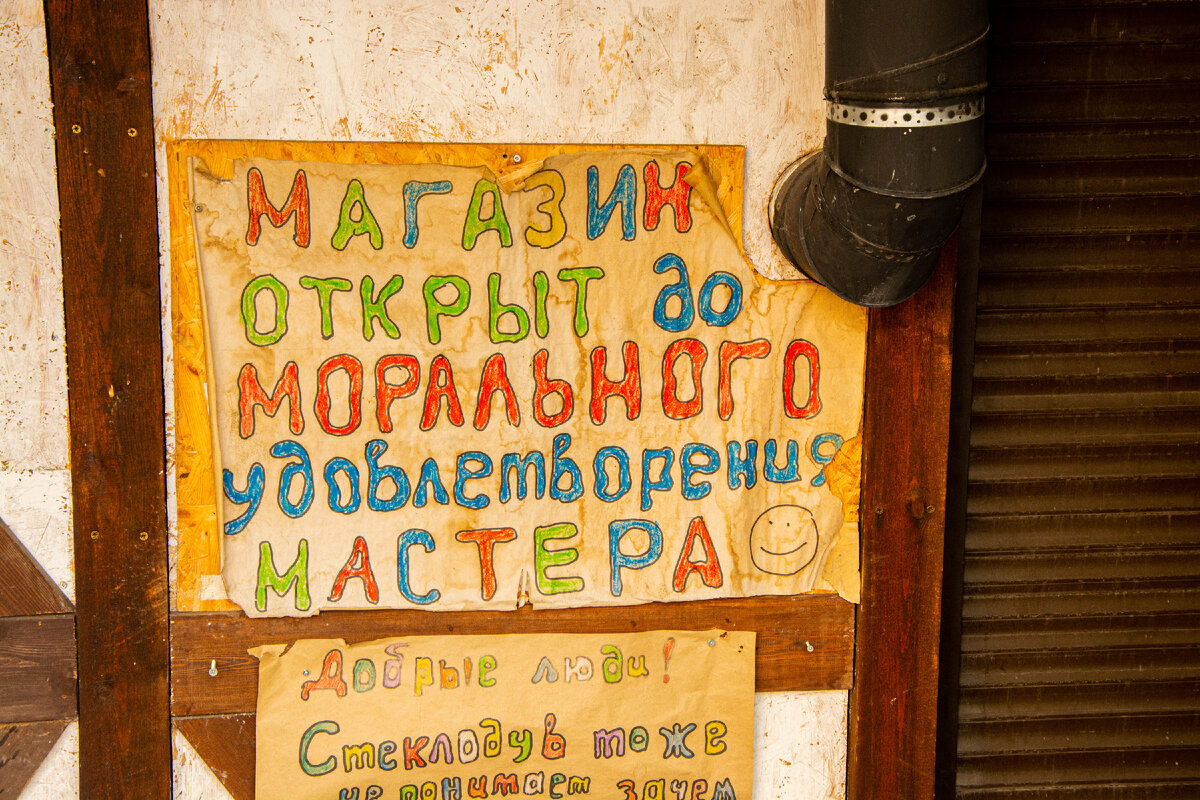 МАГАЗИН
ОТКРЫТ до
МОРАЛЬНОГО
удовлетворения
МАСТЕРА
Добрые люди!
Стеклодув тоже
не понимает зачем